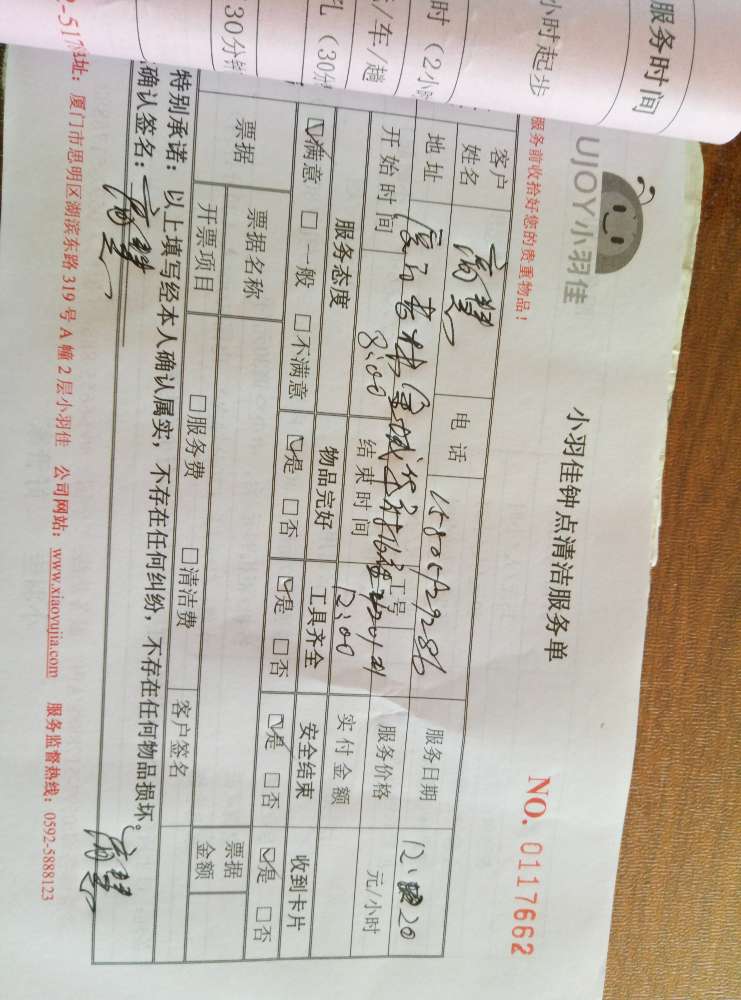 服务时间
小时起步
时（2小时
/车/趟
孔（30分
30分钟
UJOY小羽佳
小羽佳钟点清洁服务单
NO. 0117662
服务前收拾好您的贵重物品！
客户姓名 电话 服务日期 12、20
地址 工号 服务价格 元/小时
开始时间 8:00 结束时间 12:00 实付金额
服务态度 物品完好 工具齐全 安全结束 收到卡片
☑满意 □一般 □不满意 ☑是 □否 ☑是 □否 ☑是 □否 ☑是 □否
票据 票据名称 票据金额
开票项目 □服务费 □清洁费 客户签名
特别承诺：以上填写经本人确认属实，不存在任何纠纷，不存在任何物品损坏。
确认签名：
2-517 址：厦门市思明区湖滨东路319号A幢2层小羽佳 公司网站：www.xiaoyujia.com 服务监督热线：0592-5888123